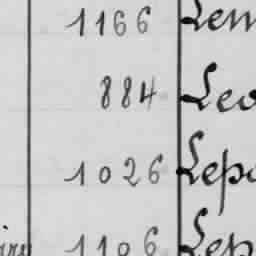 1166 Lem
884 Leo
1026 Lepo
1106 Lep